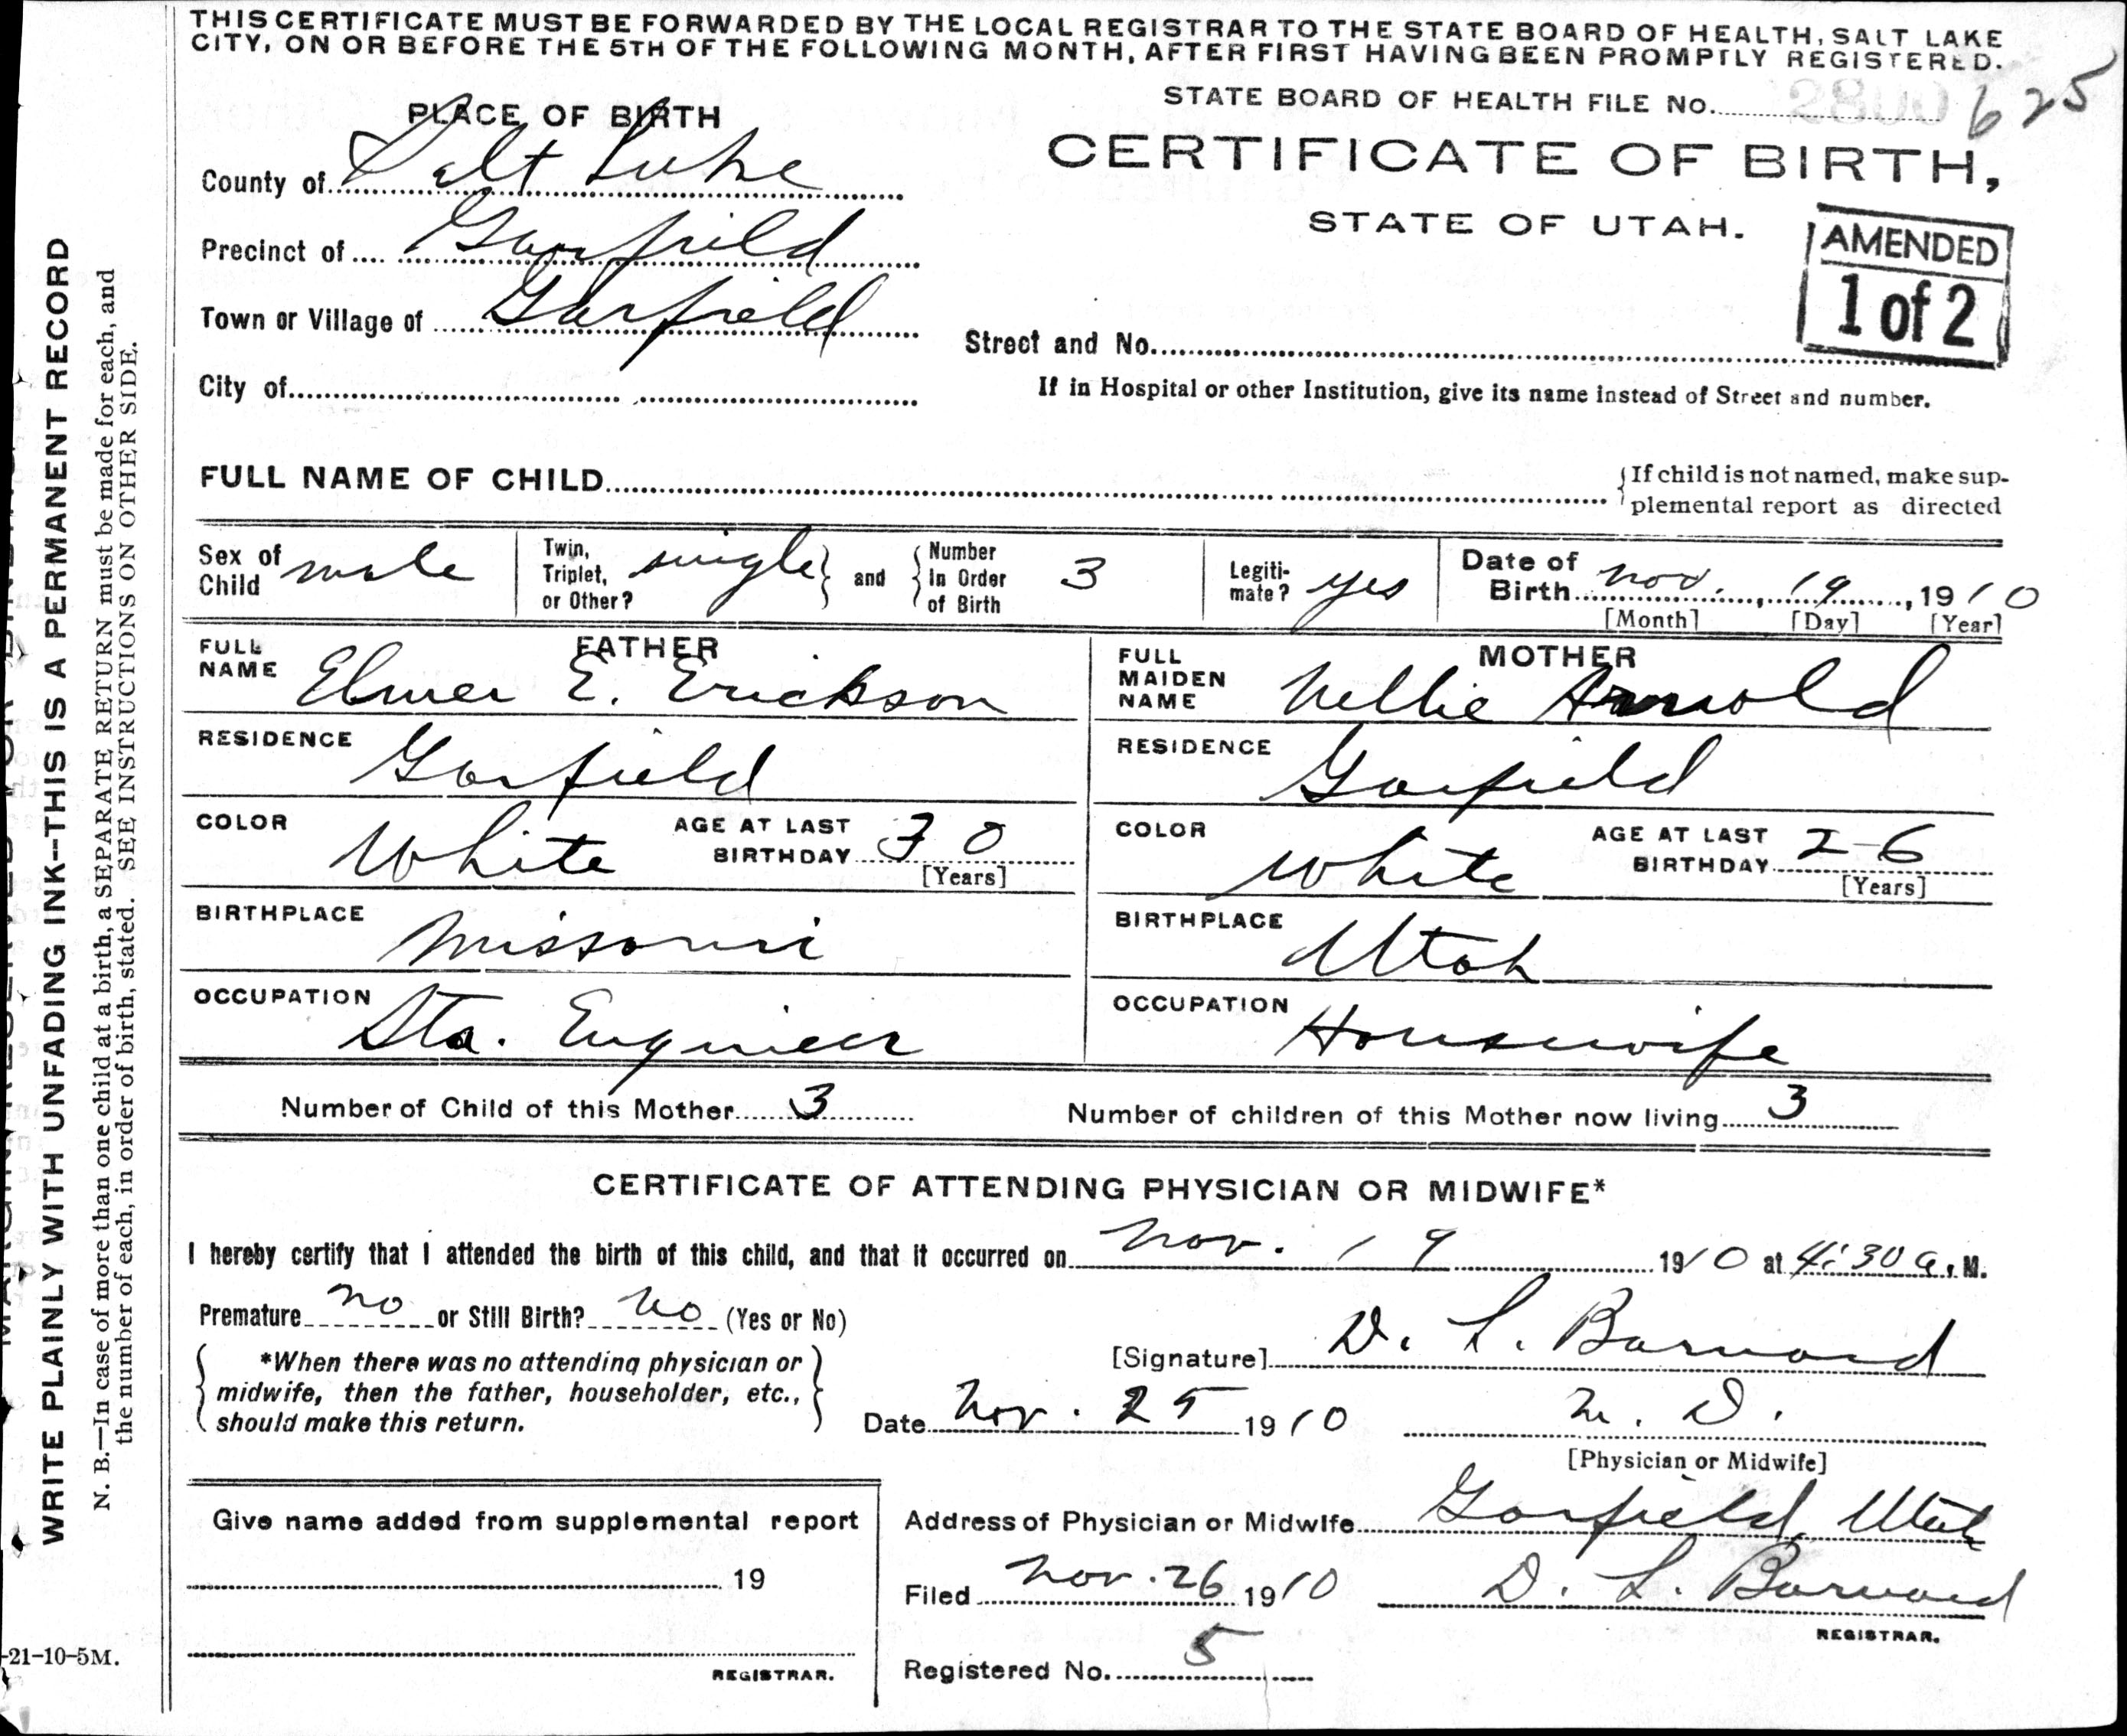 THIS CERTIFICATE MUST BE FORWARDED BY THE LOCAL REGISTRAR TO THE STATE BOARD OF HEALTH, SALT LAKE
CITY, ON OR BEFORE THE 5TH OF THE FOLLOWING MONTH, AFTER FIRST HAVING BEEN PROMPTLY REGISTERED.
STATE BOARD OF HEALTH FILE No. 2800 625
PLACE OF BIRTH
CERTIFICATE OF BIRTH,
STATE OF UTAH.
AMENDED
1 of 2
County of Salt Lake
Precinct of Garfield
Town or Village of Garfield
Street and No.
City of
If in Hospital or other Institution, give its name instead of Street and number.
FULL NAME OF CHILD
If child is not named, make sup-
plemental report as directed
Sex of Child male
Twin, Triplet, or Other? single and Number In Order of Birth 3
Legiti-mate? yes
Date of Birth Nov. 19, 1910
[Month] [Day] [Year]
FATHER
FULL NAME Elmer E. Erickson
RESIDENCE Garfield
COLOR White AGE AT LAST BIRTHDAY 30
[Years]
BIRTHPLACE Missouri
OCCUPATION Sta. Engineer
MOTHER
FULL MAIDEN NAME Nellie Arnold
RESIDENCE Garfield
COLOR White AGE AT LAST BIRTHDAY 26
[Years]
BIRTHPLACE Utah
OCCUPATION Housewife
Number of Child of this Mother 3 Number of children of this Mother now living 3
CERTIFICATE OF ATTENDING PHYSICIAN OR MIDWIFE*
I hereby certify that I attended the birth of this child, and that it occurred on Nov. 19 1910 at 4:30 a. M.
Premature no or Still Birth? no (Yes or No)
*When there was no attending physician or
midwife, then the father, householder, etc.,
should make this return.
[Signature] D. L. Barnard
Date Nov. 25 1910 M. D.
[Physician or Midwife]
Give name added from supplemental report
19
REGISTRAR.
Address of Physician or Midwife Garfield, Utah
Filed Nov. 26 1910 D. L. Barnard
REGISTRAR.
Registered No. 5
WRITE PLAINLY WITH UNFADING INK--THIS IS A PERMANENT RECORD
N. B.—In case of more than one child at a birth, a SEPARATE RETURN must be made for each, and
the number of each, in order of birth, stated. SEE INSTRUCTIONS ON OTHER SIDE.
-21-10-5M.